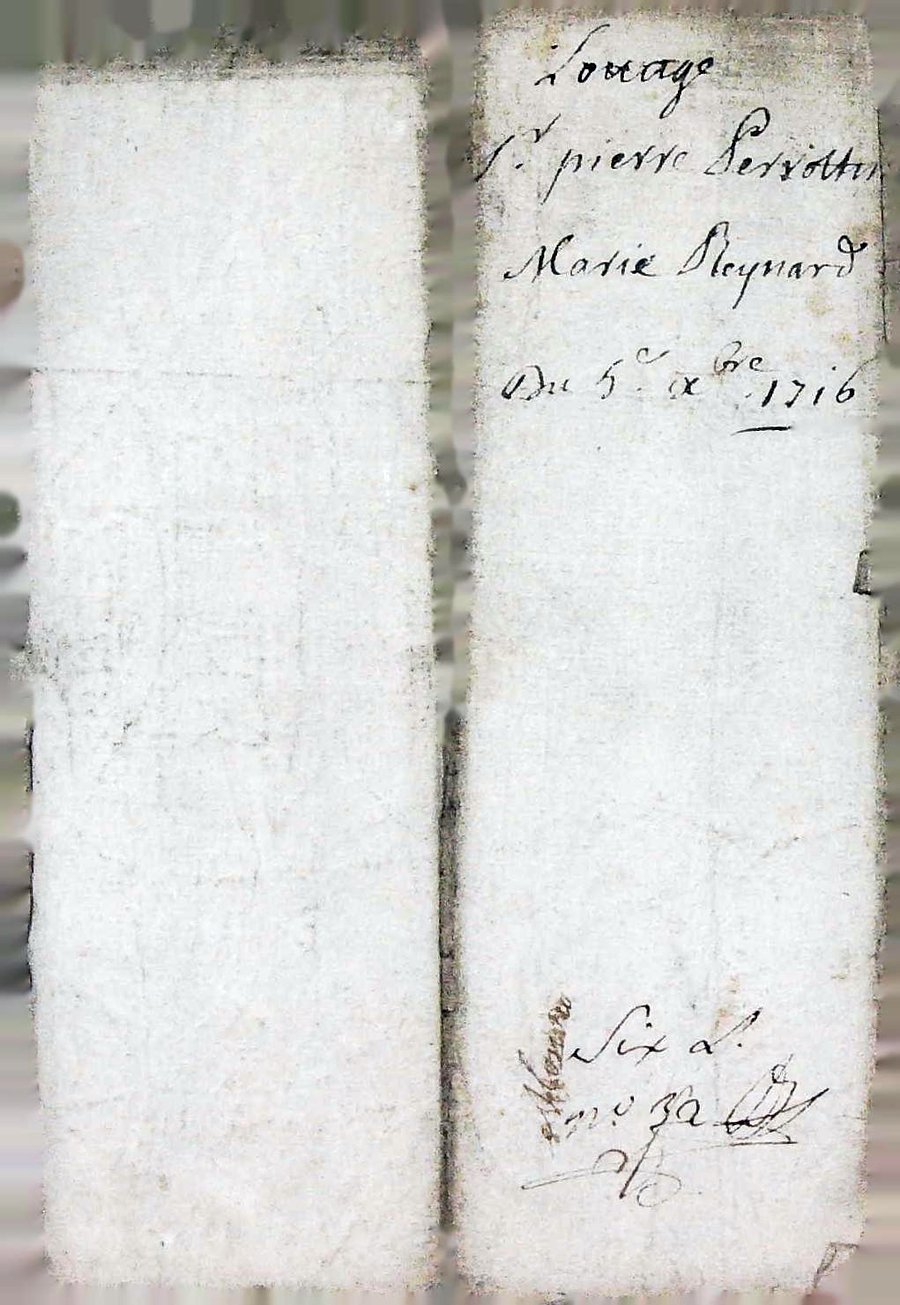 Louage
Sr pierre Perrottin
Marie Reynard
Du 5e xbre 1716
Six L.
no 32